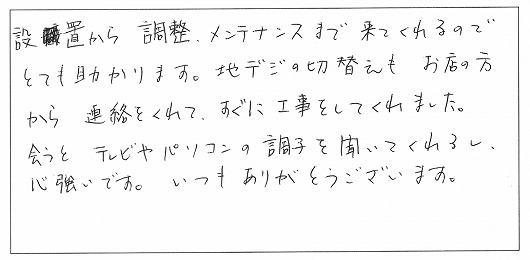 設置から 調整、メンテナンスまで 来てくれるので
とても助かります。地デジの切替えも お店の方
から 連絡をくれて、すぐに工事をしてくれました。
会うと テレビや パソコンの調子を聞いてくれるし、
心強いです。 いつも ありがとうございます。